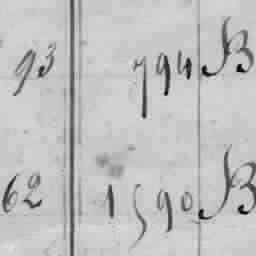 93 794 B
62 1590 B